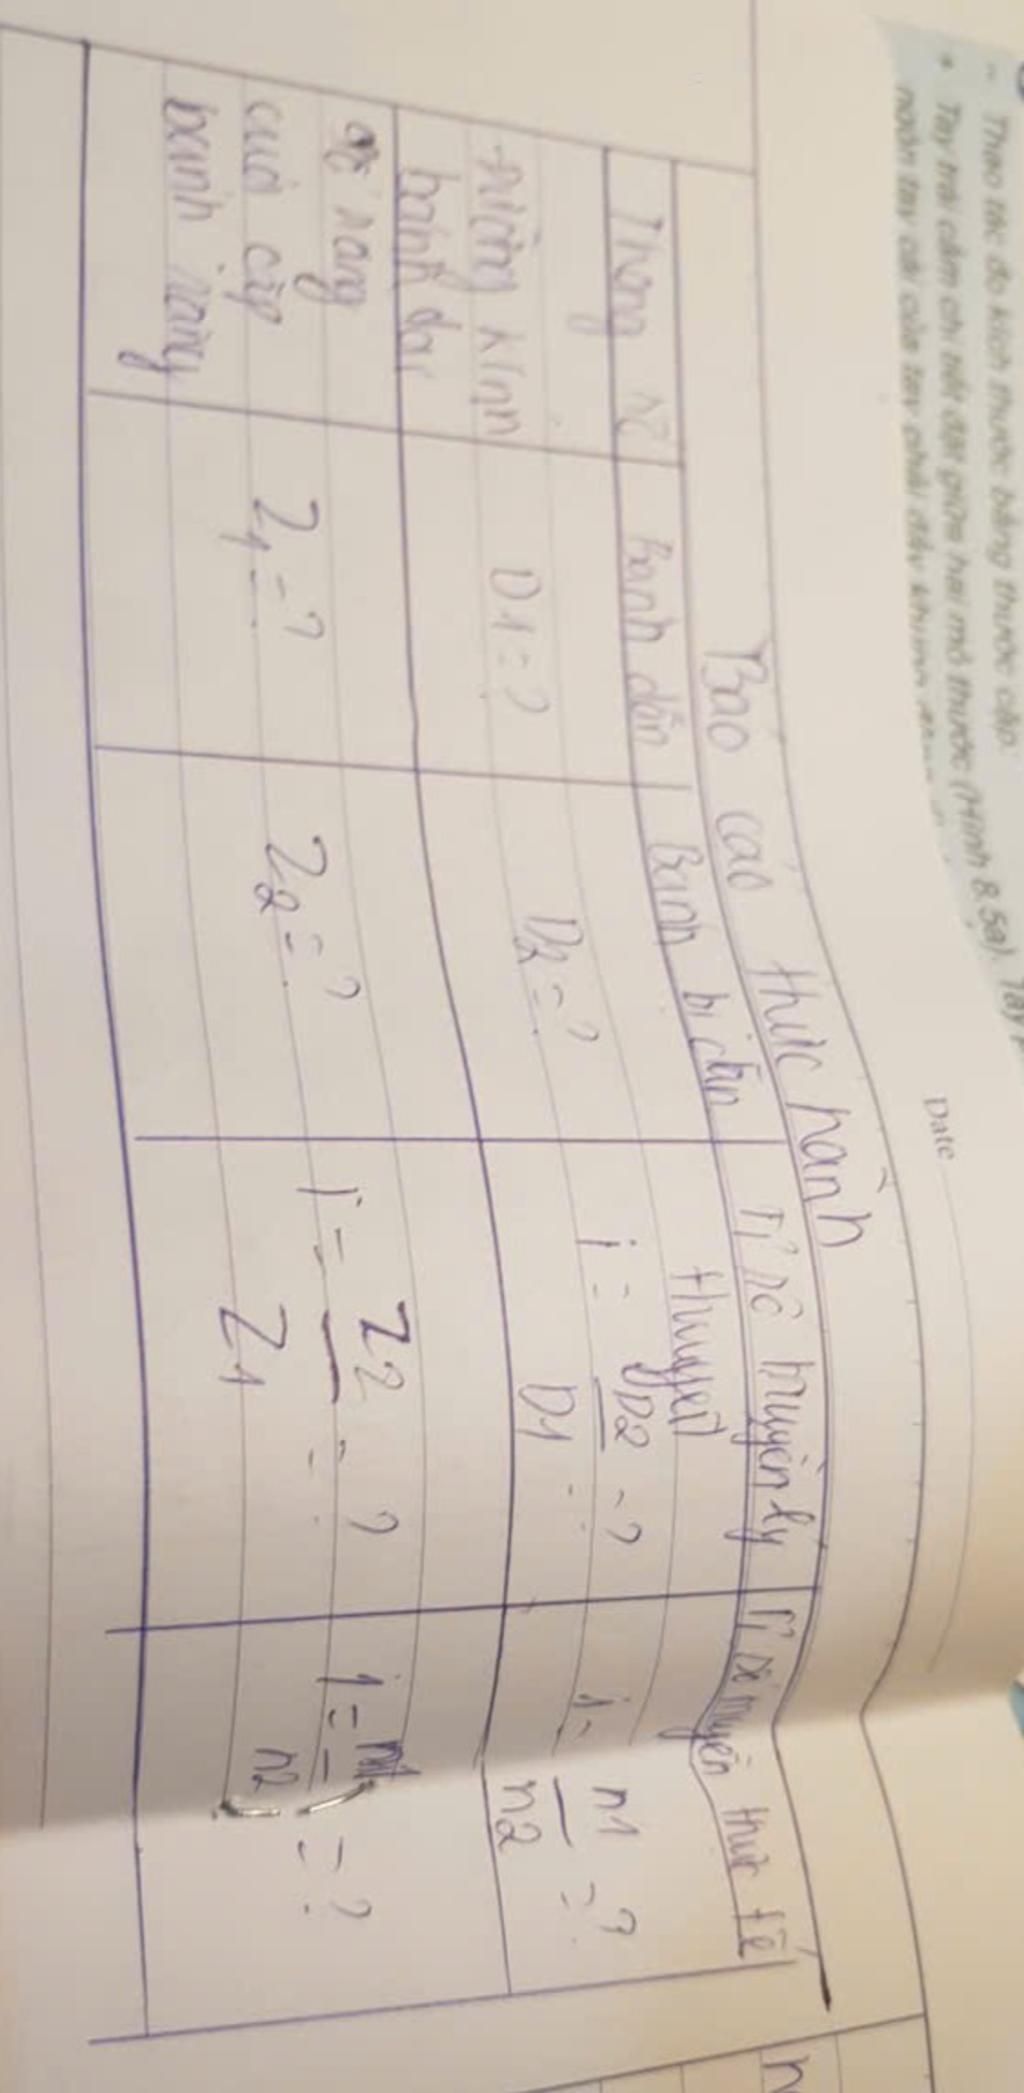 - Thao tác đo kích thước bằng thước cặp:
• Tay trái cầm chi tiết đặt giữa hai mỏ thước (Hình 8.5a). Tay p
ngón tay cái của tay phải đẩy khung
Date
Báo cáo thực hành
Thông số
Bánh dẫn
Bánh bị dẫn
Tỉ số truyền lý thuyết
Tỉ số truyền thực tế
đường kính bánh đai
D1 = ?
D2 = ?
i = D2/D1 = ?
i = n1/n2 = ?
số răng của cặp bánh răng
Z1 = ?
Z2 = ?
i = Z2/Z1 = ?
i = n1/n2 = ?
n